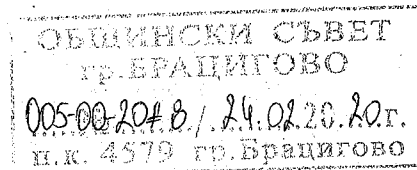 ОБЩИНСКИ СЪВЕТ
гр.БРАЦИГОВО
005-00-20#8/24.02.2020.г.
п.к. 4579 гр.Брацигово